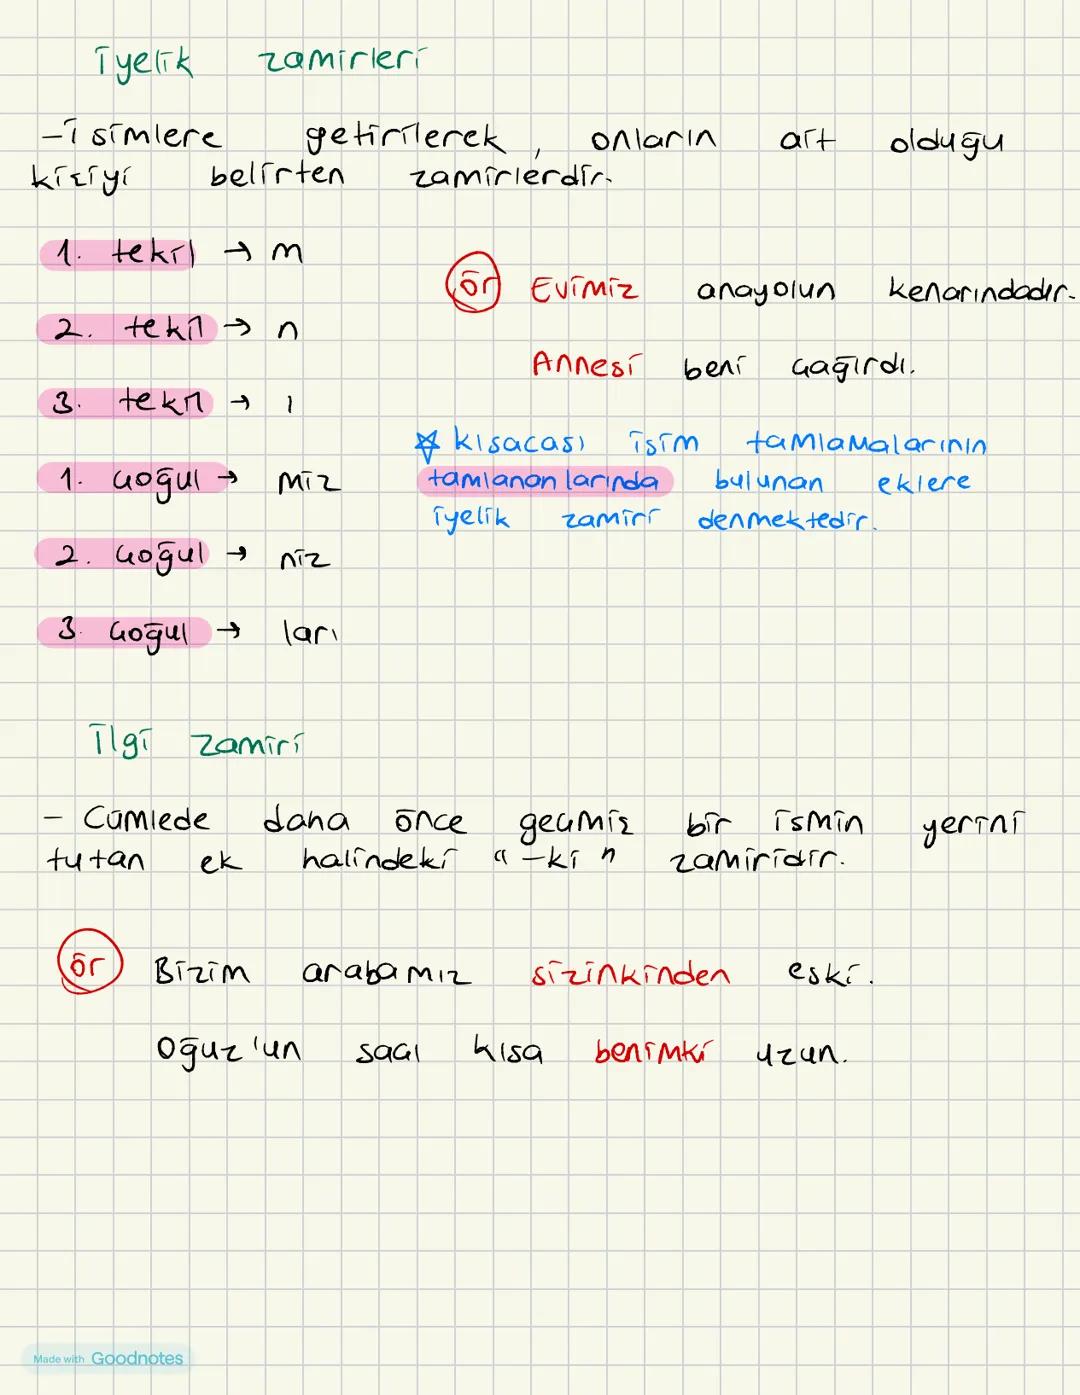 iyelik zamirleri
-isimlere getirilerek, onların ait olduğu
kişiyi belirten zamirlerdir.
1. tekil → m
2. tekil → n
3. tekil → ı
1. çoğul → miz
2. çoğul → niz
3. çoğul → ları
ör Evimiz anayolun kenarındadır.
Annesi beni çağırdı.
☆ kısacası isim tamlamalarının
tamlananlarında bulunan eklere
iyelik zamiri denmektedir.
ilgi zamiri
- Cümlede daha önce geçmiş bir ismin yerini
tutan ek halindeki "-ki" zamiridir.
ör Bizim arabamız sizinkinden eski.
Oğuz'un saçı kısa benimki uzun.
Made with Goodnotes